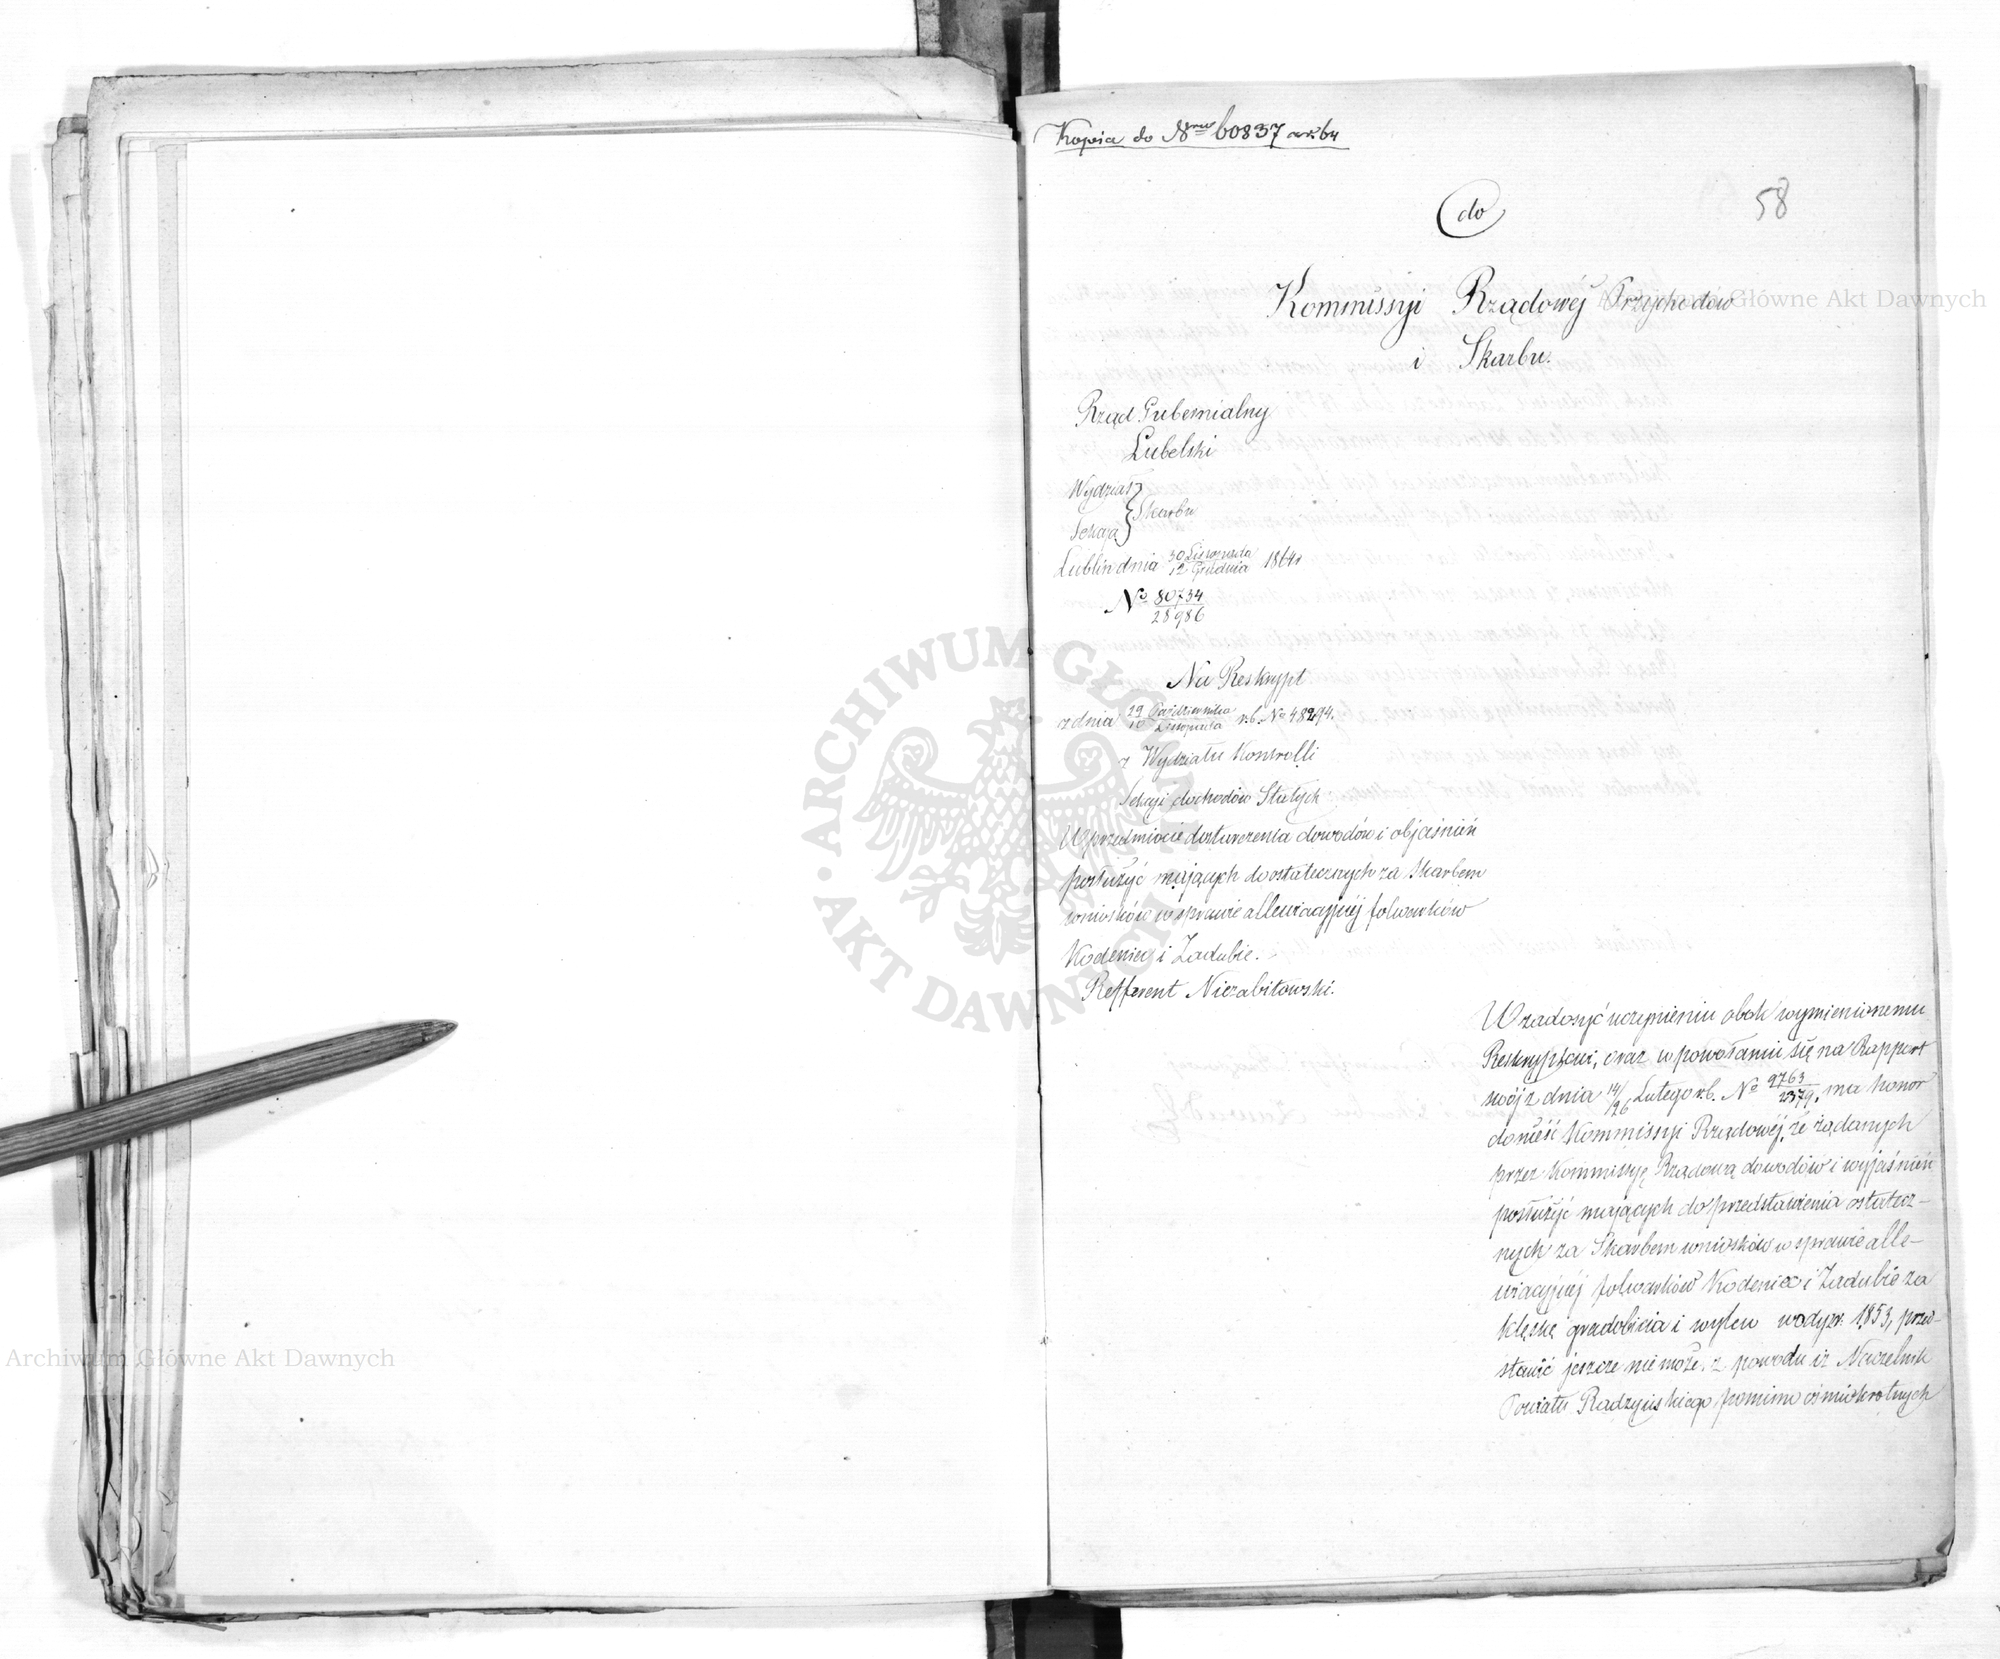 Kopia do Nru 60837 ark 64
58
do
Kommissyi Rządowéj Przychodów
i Skarbu.
Rząd Gubernialny
Lubelski
Wydział
Sekcja } Skarbu
Lublin dnia 30 Listopada / 12 Grudnia 1864 r
No 80734 / 28986
Na Reskrypt
z dnia 29 Października / 10 Listopada r.b. No 48294.
z Wydziału Kontrolli
Sekcyi dochodów Stałych
W przedmiocie dostarczenia dowodów i objaśnień
posłużyć mających do ostatecznych za Skarbem
wniosków w sprawie allewiacyjnéj folwarków
Kodeniec i Zadubie.
Refferent Niezabitowski.
W zadosyć uczynieniu obok wymienionemu
Reskryptowi, oraz w powołaniu się na Rapport
swój z dnia 14/26 Lutego r.b. No 9763 / 2379, ma honor
donieść Kommissyi Rządowéj, że żądanych
przez Kommissyę Rządową dowodów i wyjaśnień
posłużyć mających do przedstawienia ostatecz-
nych za Skarbem wniosków w sprawie alle-
wiacyjnéj folwarków Kodeniec i Zadubie za
klęskę gradobicia i wylew wody z r. 1853, przed-
stawić jeszcze nie może, z powodu iż Naczelnik
Powiatu Radzyńskiego, pomimo ośmiokrotnych
ARCHIWUM GŁÓWNE AKT DAWNYCH
Archiwum Główne Akt Dawnych
Archiwum Główne Akt Dawnych